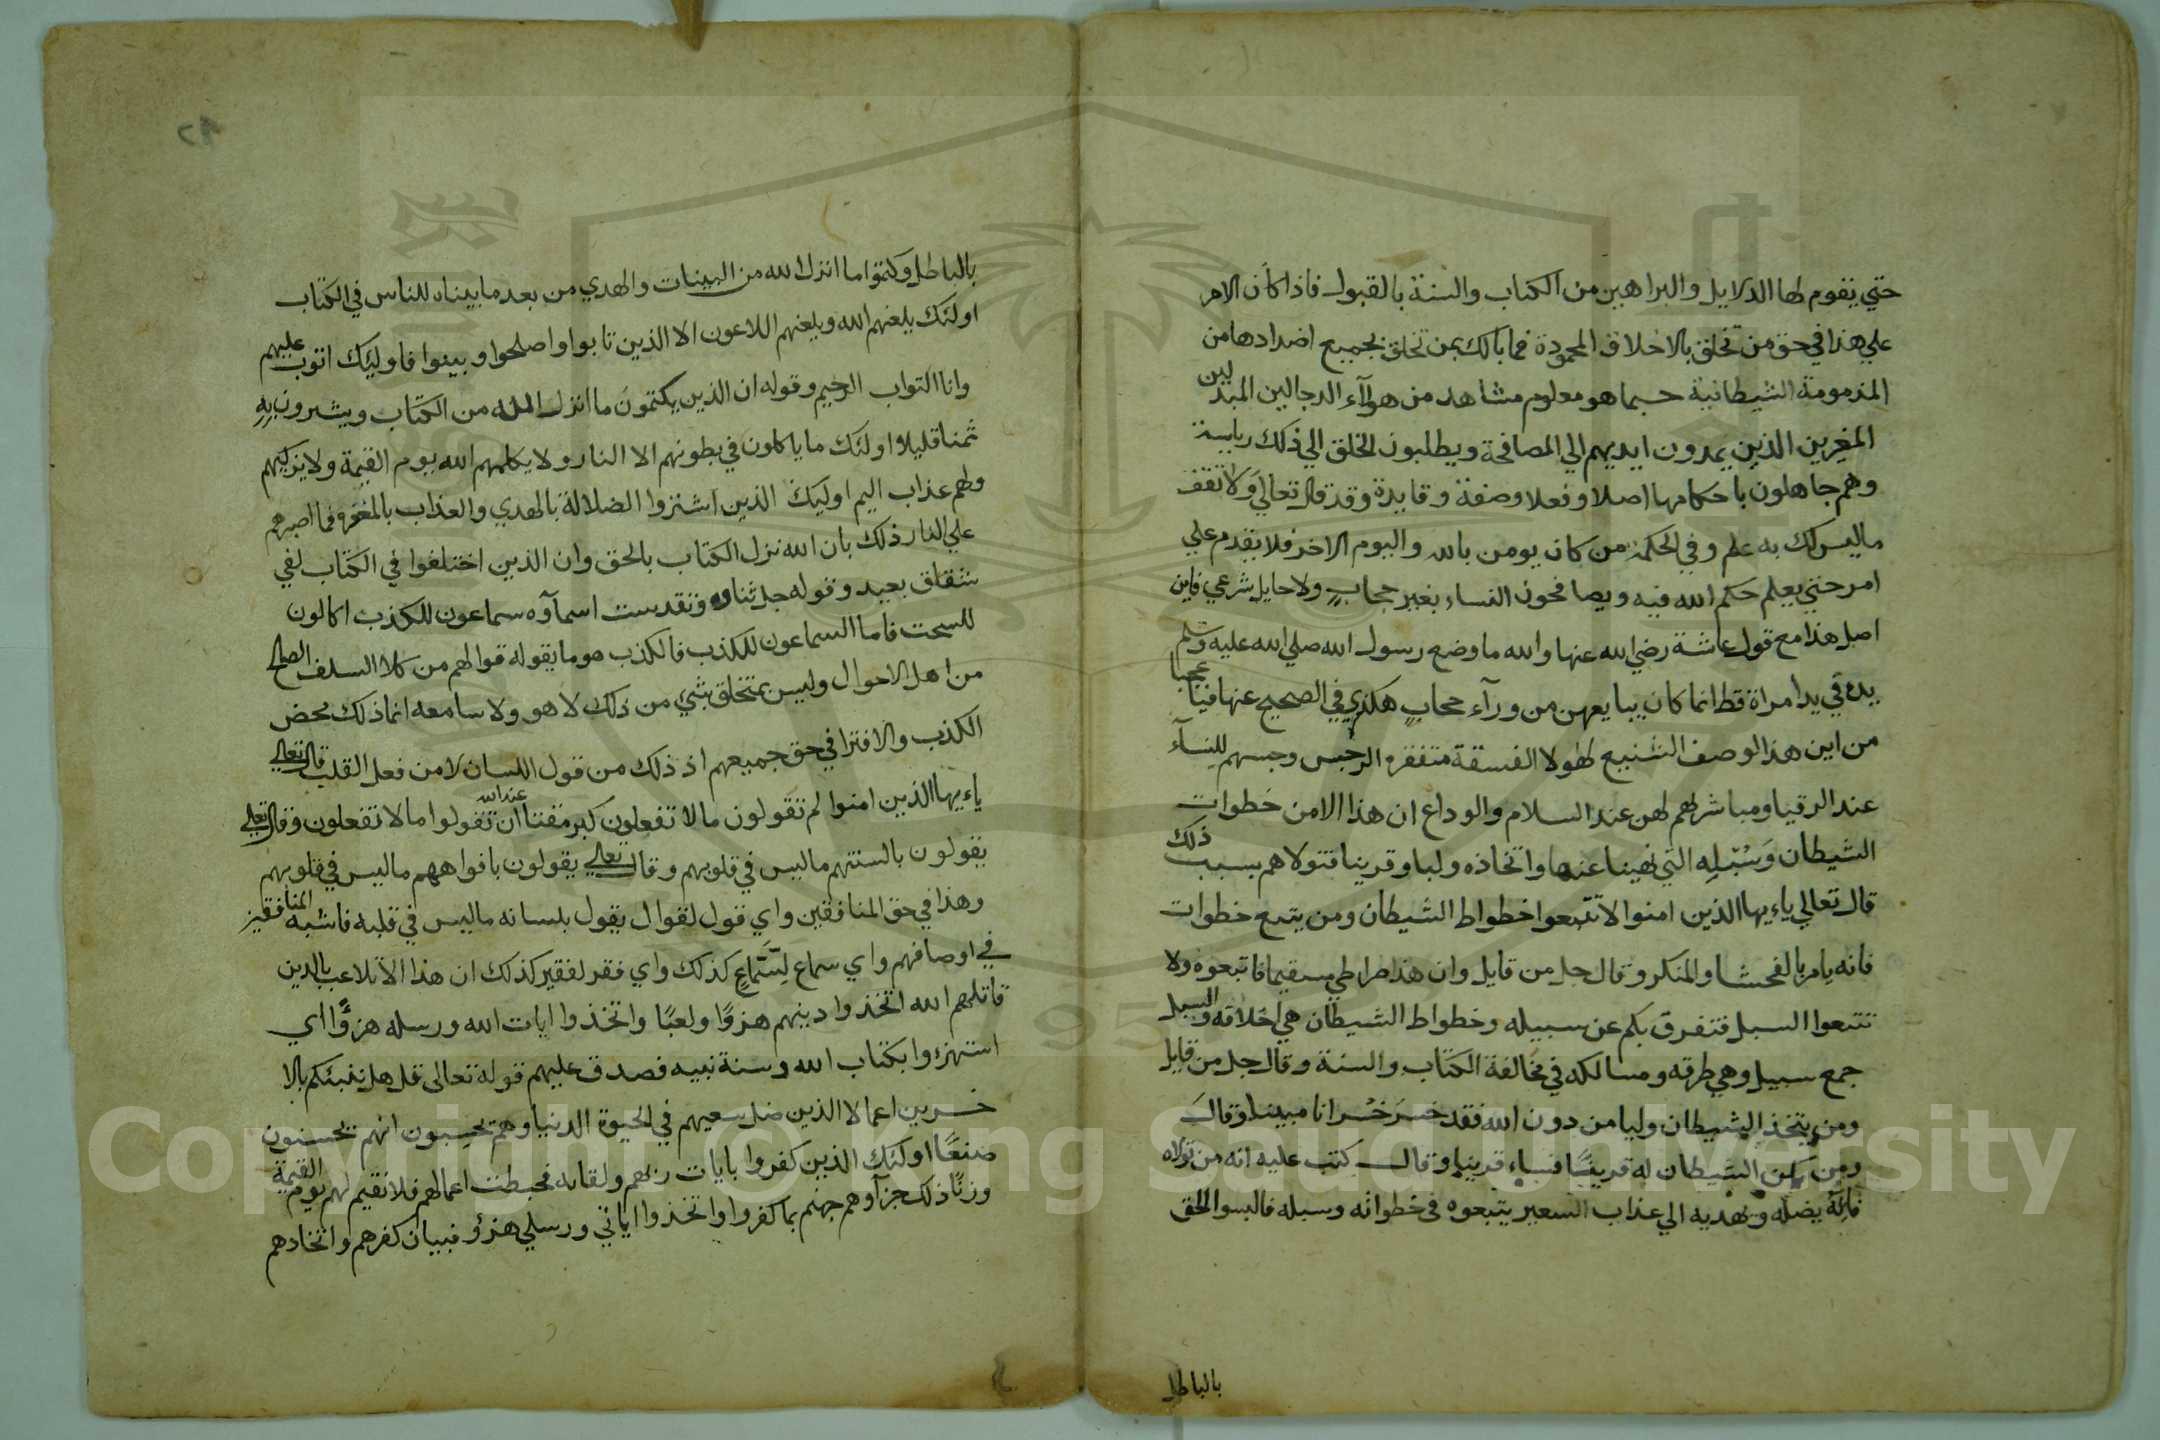 حتي يقوم لها الدلايل والبراهين من الكتاب والسنة بالقبول فاذا كان الامر
علي هذا في حق من تخلق بالاخلاق المحمودة فما بالك بمن تخلق بجميع اضدادها من
المذمومة الشيطانية حسبما هو معلوم مشاهد من هولآء الدجالين المبدلين
المغرين الذين يمدون ايديهم الي المصافحة ويطلبون الخلق الي ذلك رياسة
وهم جاهلون باحكامها اصلا وفعلا وصفة وفايدة وقد قال تعالي ولا تقف
ماليس لك به علم وفي الحكمة من كان يومن بالله واليوم الاخر فلا يقدم علي
امر حتي يعلم حكم الله فيه ويصافحون النساء بغير حجاب ولا حايل شرعي فاين
اصل هذا مع قول عاشة رضي الله عنها والله ما وضع رسول الله صلي الله عليه وسلم
يده في يد امراة قط انما كان يبايعهن من ورآء حجاب هكذي في الصحيح عنها فيا عجبا
من اين هذا الوصف الشنيع لهولا الفسقة متفقره الرجس وجسهم للنسآء
عند الرقيا ومباشرلهم لهن عند السلام والوداع ان هذا الا من خطوات
الشيطان وسبله التي نهينا عنها واتخاذه وليا وقرينا فتولاهم بسبب ذلك
قال تعالي ياءيها الذين امنوا لا تتبعوا خطواط الشيطان ومن يتبع خطوات
فانه يامر بالفحشا والمنكر وقال جل من قايل وان هذا صراطي مستقيما فاتبعوه ولا
تتبعوا السبل فتفرق بكم عن سبيله وخطواط الشيطان هي اخلاقه والسبل
جمع سبيل وهي طرقه ومسالكه في مخالفة الكتاب والسنة وقال جل من قايل
ومن يتخذ الشيطان وليا من دون الله فقد خسر خسرانا مبينا وقال
ومن يكن الشيطان له قرينًا فساء قرينا وقال كتب عليه انه من تولاه
فانه يضله ويهديه الي عذاب السعير يتبعوه في خطواته وسبله فالبسوا الحق
بالباطل
٩٢
بالباطل وكتموا ما انزل الله من البينات والهدي من بعد ما بيناه للناس في الكتاب
اولئك يلعنهم الله ويلعنهم اللاعون الا الذين تابوا واصلحوا وبينوا فاوليك اتوب عليهم
وانا التواب الرحيم وقوله ان الذين يكتمون ما انزل الله من الكتاب ويشترون به
ثمنا قليلا اولئك ما ياكلون في بطونهم الا النار ولا يكلمهم الله يوم القيمة ولا يزكيهم
ولهم عذاب اليم اوليك الذين اشتروا الضلالة بالهدي والعذاب بالمغفرة فما اصبرهم
علي النار ذلك بان الله نزل الكتاب بالحق وان الذين اختلفوا في الكتاب لفي
شقاق بعيد وقوله جل ثناوه وتقدست اسمآوه سماعون للكذب اكالون
للسحت فاما السماعون للكذب فالكذب هو ما يقوله قوالهم من كلا السلف الصالح
من اهل الاحوال وليس بمتخلق بشي من ذلك لا هو ولا سامعه انما ذلك محض
الكذب والافترا في حق جميعهم اذ ذلك من قول اللسان لا من فعل القلب قال تعالي
ياءيها الذين امنوا لم تقولون ما لا تفعلون كبر مقتا عند الله ان تقولوا ما لا تفعلون وقال تعالي
يقولون بالسنتهم ماليس في قلوبهم وقال تعالي يقولون بافواههم ماليس في قلوبهم
وهذا في حق المنافقين واي قول لقوال يقول بلسانه ماليس في قلبه فاشبه المنافقين
في اوصافهم واي سماع لستماع كذلك واي فقر لفقير كذلك ان هذا الا تلاعب بالدين
قاتلهم الله اتخذوا دينهم هزوًا ولعبًا واتخذوا ايات الله ورسله هزؤًا اي
استهزءوا بكتاب الله وسنة نبيه فصدق عليهم قوله تعالى قل هل ننبئكم بالا
خسرين اعمالا الذين ضل سعيهم في الحيوة الدنيا وهم يحسبون انهم يحسنون
صنعًا اولئك الذين كفروا بايات ربهم ولقائه فحبطت اعمالهم فلا نقيم لهم يوم القيمة
وزنًا ذلك جزآوهم جهنم بما كفروا واتخذوا اياتي ورسلي هزؤ فبيان كفرهم واتخادهم
Copyright © King Saud University